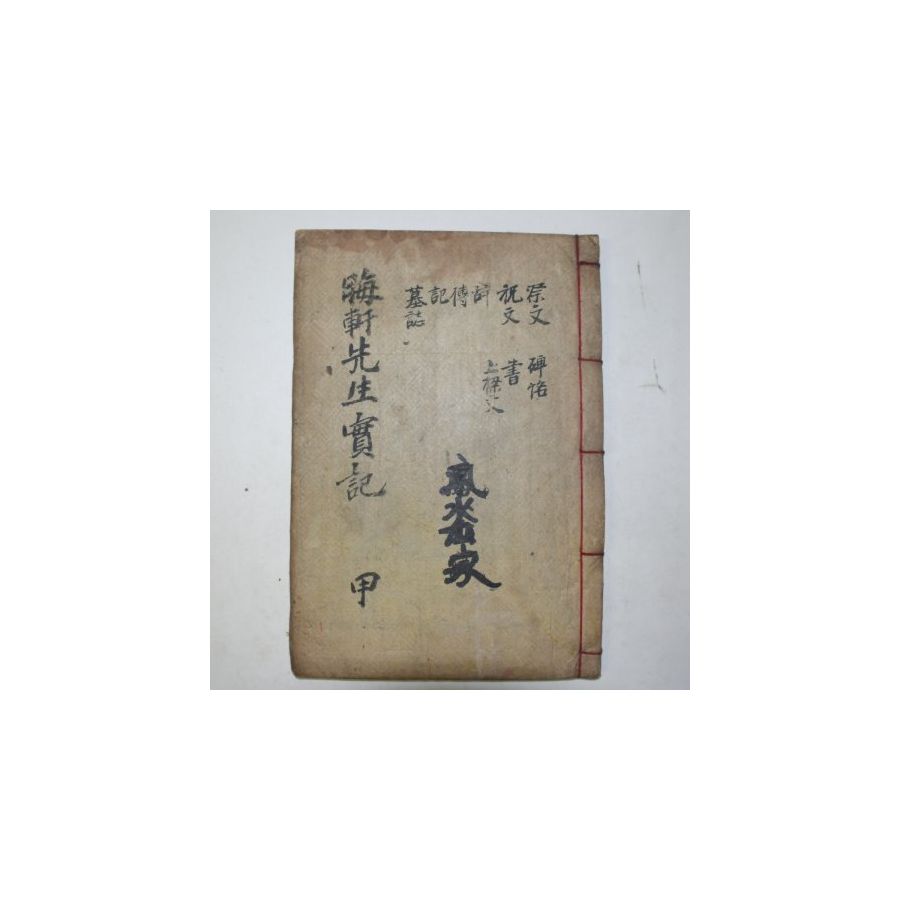 祭文 碑銘
祝文 書
上樑文
傳
記
墓誌
風水 家
晦軒先生實記 甲